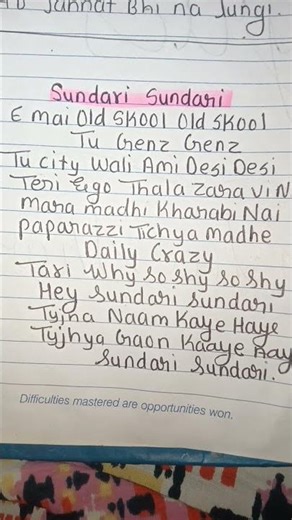 Jannat Bhi na Jungi.
Sundari Sundari
E mai Old SKool Old SKool
Tu Genz Genz
Tu city Wali Ami Desi Desi
Teri Ego Thala Zara vi N
mara madhi Kharabi Nai
paparazzi Tichya madhe
Daily Crazy
Tari Why So Shy So Shy
Hey Sundari Sundari
Tujha Naam Kaye Haye
Tujhya Gaon Kaaye Aay
Sundari Sundari.
Difficulties mastered are opportunities won.